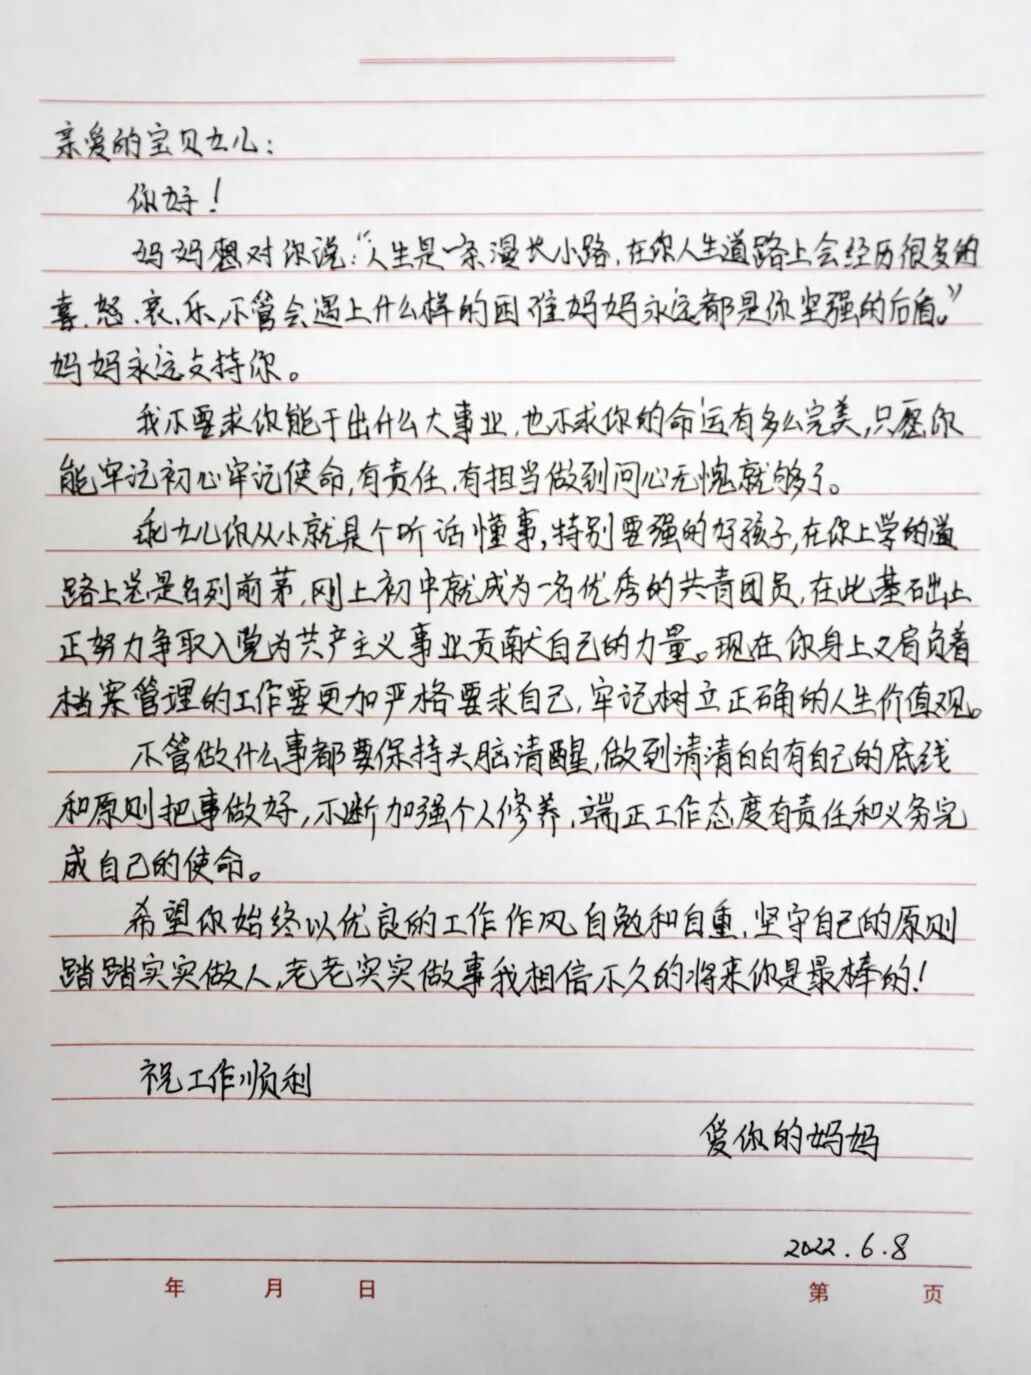 亲爱的宝贝女儿：
你好！
妈妈想对你说：“人生是一条漫长小路，在你人生道路上会经历很多的
喜、怒、哀、乐，不管会遇上什么样的困难妈妈永远都是你坚强的后盾。”
妈妈永远支持你。
我不要求你能干出什么大事业，也不求你的命运有多么完美，只愿你
能牢记初心牢记使命，有责任、有担当做到问心无愧就够了。
乖女儿你从小就是个听话懂事，特别要强的好孩子，在你上学的道
路上总是名列前茅，刚上初中就成为一名优秀的共青团员，在此基础上
正努力争取入党为共产主义事业贡献自己的力量。现在你身上又肩负着
档案管理的工作需更加严格要求自己，牢记树立正确的人生价值观。
不管做什么事都要保持头脑清醒，做到清清白白有自己的底线
和原则把事做好，不断加强个人修养、端正工作态度有责任和义务完
成自己的使命。
希望你始终以优良的工作作风、自勉和自重，坚守自己的原则
踏踏实实做人，老老实实做事我相信不久的将来你是最棒的！
祝工作顺利
爱你的妈妈
2022.6.8
年 月 日 第 页